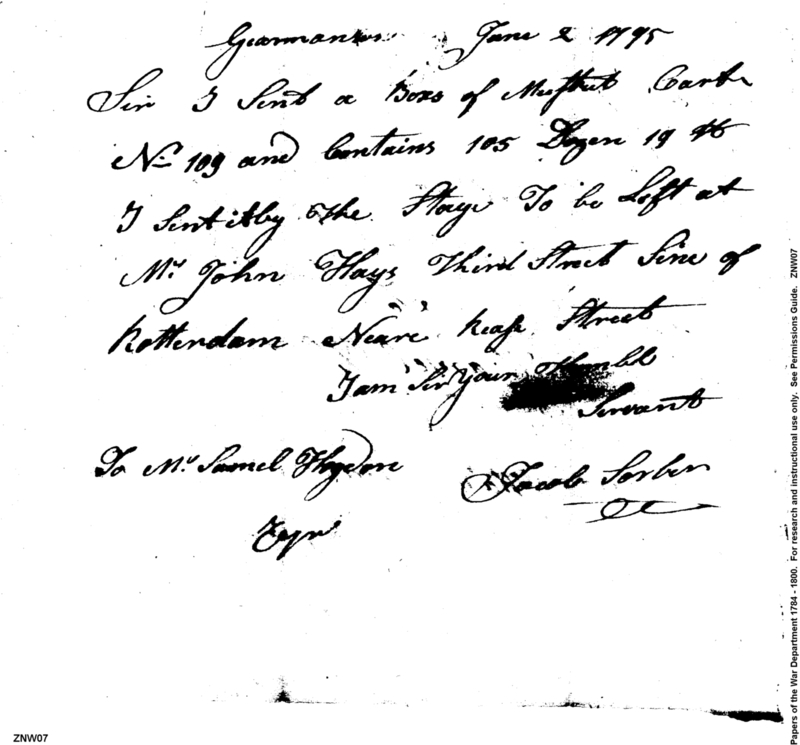 Gearmanton June 2 1795
Sir I Sent a Boxs of Musket Cart
No 109 and Contains 105 Dozen 19 lb
I Sent it by The Stage To be Left at
Mr John Hays Third Street Sine of
Rotterdam Neare Street
I am Sir Your Humbl
Servant
To Mr Samel Hogdon Jacob Sorber
Esqr
ZNW07
Papers of the War Department 1784 - 1800. For research and instructional use only. See Permissions Guide. ZNW07